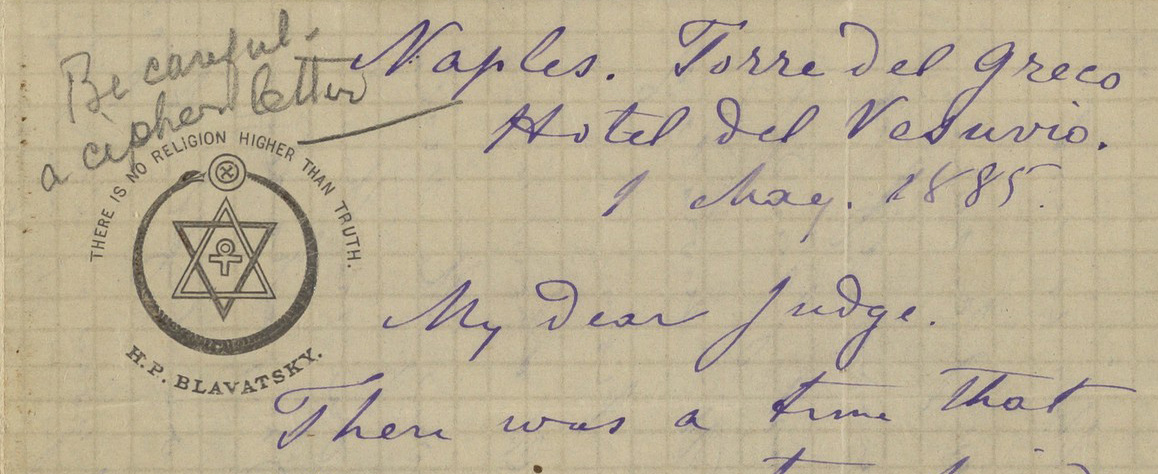 Be careful.
a cipher letter
THERE IS NO RELIGION HIGHER THAN TRUTH.
H.P. BLAVATSKY.
Naples. Torre del Greco
Hotel del Vesuvio.
1 May. 1885.
My Dear Judge.
There was a time that